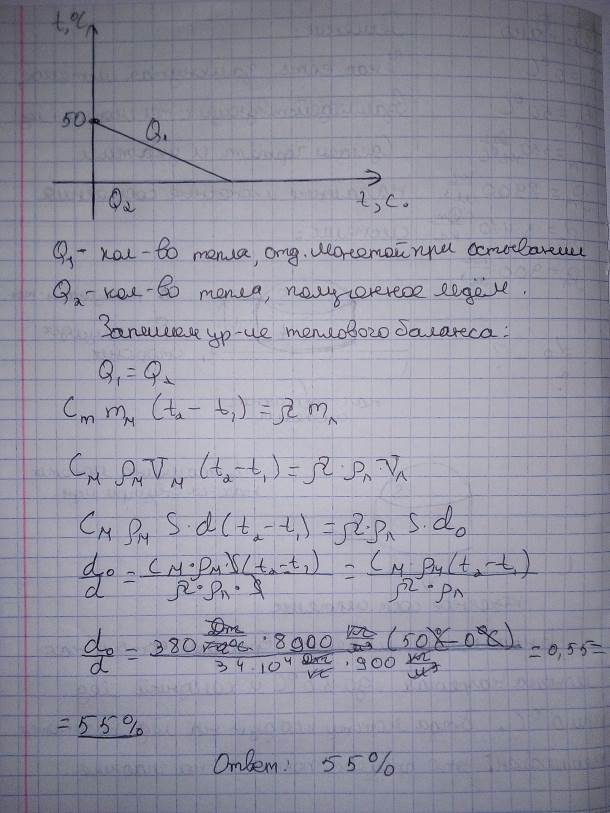 t,°C
50
Q₁
Q₂
t, c.
Q₁ - кол-во тепла, отд. монетой при остывании
Q₂ - кол-во тепла, полученное льдём.
Запишем ур-ие теплового баланса:
Q₁ = Q₂
Cₘ mₘ (t₂ - t₁) = λ mₙ
Cₘ ρₘ Vₘ (t₂ - t₁) = λ · ρₙ · Vₙ
Cₘ ρₘ S · d (t₂ - t₁) = λ · ρₙ S · d₀
d₀/d = Cₘ · ρₘ · S (t₂ - t₁) / λ · ρₙ · S = Cₘ · ρₘ (t₂ - t₁) / λ · ρₙ
d₀/d = 380 Дж/кг°C · 8900 кг/м³ (50°C - 0°C) / 34 · 10⁴ Дж/кг · 900 кг/м³ = 0,55 =
= 55%
Ответ: 55%